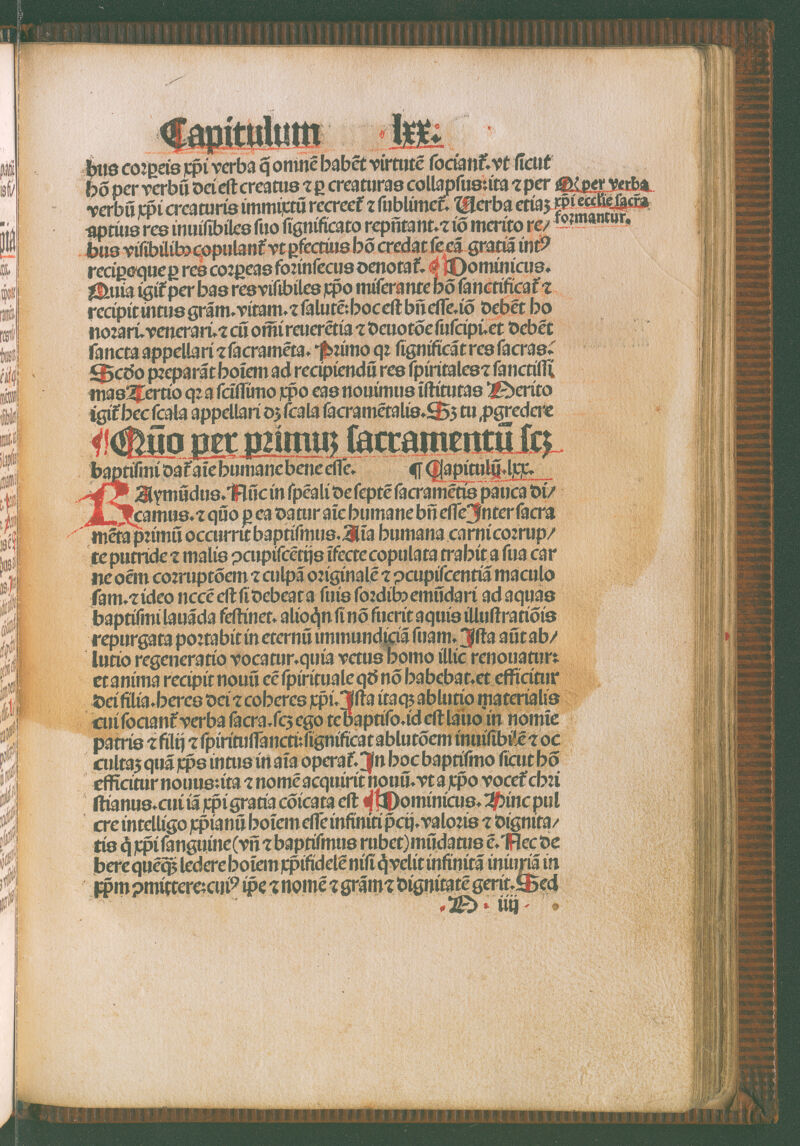 Capitulum lxx.
bus corꝑeis xp̄i verba q̄ omnē habēt virtutē sociant᷑. vt sicut
hō per verbū dei est creatus ⁊ ꝑ creaturas collapsus: ita ⁊ per
verbū xp̄i creaturis immixtū recreet᷑ ⁊ sublimet᷑. Uerba etiaꝫ
aptius res inuisibiles suo significato repñtant. ⁊ iō merito re/
bus visibilibꝰ copulant᷑ vt ꝑfectius hō credat se eā gratiā intꝰ
reciꝑe que ꝑ res corꝑeas forinsecus denotat᷑. ¶ Dominicus.
Quia igit᷑ per has res visibiles xp̄o miserante hō sanctificat᷑ ⁊
recipit intus grām. vitam. ⁊ salutē: hoc est bn̄ esse. iō debēt ho
norari. venerari. ⁊ cū om̄i reuerētia ⁊ deuotōe suscipi. et debēt
sancta appellari ⁊ sacramēta. Primo qꝛ significāt res sacras.
Scd̄o preparāt hoīem ad recipiendū res spiritales ⁊ sanctissi
mas Tertio qꝛ a scīssimo xp̄o eas nouimus īstitutas Merito
igit᷑ hec scala appellari dꝫ scala sacramētalis. Sꝫ tu ꝓgredere
Qꝙ per verba
xp̄i eccl̄ie sacr̄a
formantur.
¶ Quō per primuꝫ sacramentū scꝫ
baptismi dat᷑ aīe humane bene esse. ¶ Capitulū. lxx.
RAymūdus. Nūc in spēali de septē sacramētis pauca di/
camus. ⁊ quō ꝑ ea datur aīe humane bn̄ esse Inter sacra
mēta primū occurrit baptismus. Aīa humana carni corrup/
te putride ⁊ malis ꝯcupiscētijs īfecte copulata trahit a sua car
ne oēm corruptōem ⁊ culpā originalē ⁊ ꝯcupiscentiā maculo
sam. ⁊ ideo nccē est si debeat a suis sordibꝰ emūdari ad aquas
baptismi lauāda festinet. alioq̇n si nō fuerit aquis illustratiōis
repurgata portabit in eternū immundiciā suam. Ista aūt ab/
lutio regeneratio vocatur. quia vetus homo illic renouatur:
et anima recipit nouū eē spirituale qd̄ nō habebat. et efficitur
dei filia. heres dei ⁊ coheres xp̄i. Ista itaqꝫ ablutio materialis
cui sociant᷑ verba sacra. scꝫ ego te baptiso. id est lauo in nomīe
patris ⁊ filij ⁊ spiritussancti: significat ablutōem inuisibilē ⁊ oc
cultaꝫ quā xp̄s intus in aīa operat᷑. In hoc baptismo sicut hō
efficitur nouus: ita ⁊ nomē acquirit nouū. vt a xp̄o vocet᷑ chri
stianus. cui iā xp̄i gratia cōicata est ¶ Dominicus. Hinc pul
cre intelligo xp̄ianū hoīem esse infiniti p̄cij. valoris ⁊ dignita/
tis q̇ xp̄i sanguine (vn̄ ⁊ baptismus rubet) mūdatus ē. Nec de
bere quēqꝫ ledere hoīem xp̄ifidelē nisi q̇ velit infinitā iniuriā in
xp̄m ꝯmittere: cuiꝰ ip̄e ⁊ nomē ⁊ grām ⁊ dignitatē gerit. Sed
M iiij